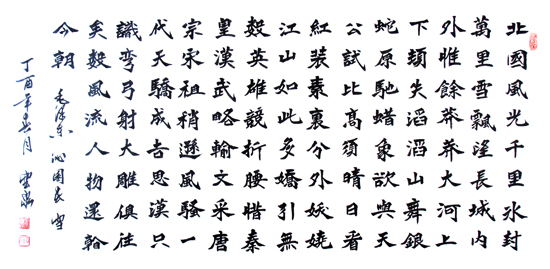 北國風光千里冰封
萬里雪飄望長城内
外惟餘莽莽大河上
下頓失滔滔山舞銀
蛇原馳蜡象欲與天
公試比高須晴日看
紅裝素裹分外妖嬈
江山如此多嬌引無
數英雄競折腰惜秦
皇漢武略輸文采唐
宗宋祖稍遜風騷一
代天驕成吉思漢只
識彎弓射大雕俱往
矣數風流人物還翰
今朝 毛泽东 沁園春 雪
丁酉年 月